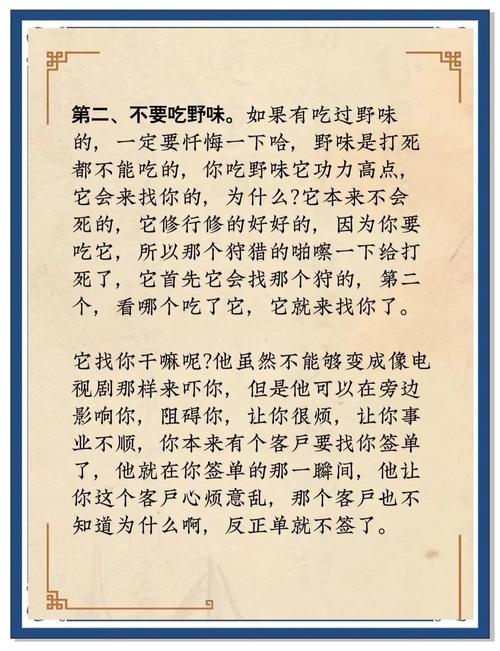 第二、不要吃野味。如果有吃过野味
的，一定要忏悔一下哈，野味是打死
都不能吃的，你吃野味它功力高点，
它会来找你的，为什么?它本来不会
死的，它修行修的好好的，因为你要
吃它，所以那个狩猎的啪嚓一下给打
死了，它首先它会找那个狩的，第二
个，看哪个吃了它，它就来找你了。
它找你干嘛呢?他虽然不能够变成像电
视剧那样来吓你，但是他可以在旁边
影响你，阻碍你，让你很烦，让你事
业不顺，你本来有个客戶要找你签单
了，他就在你签单的那一瞬间，他让
你这个客戶心烦意乱，那个客戶也不
知道为什么啊，反正单就不签了。